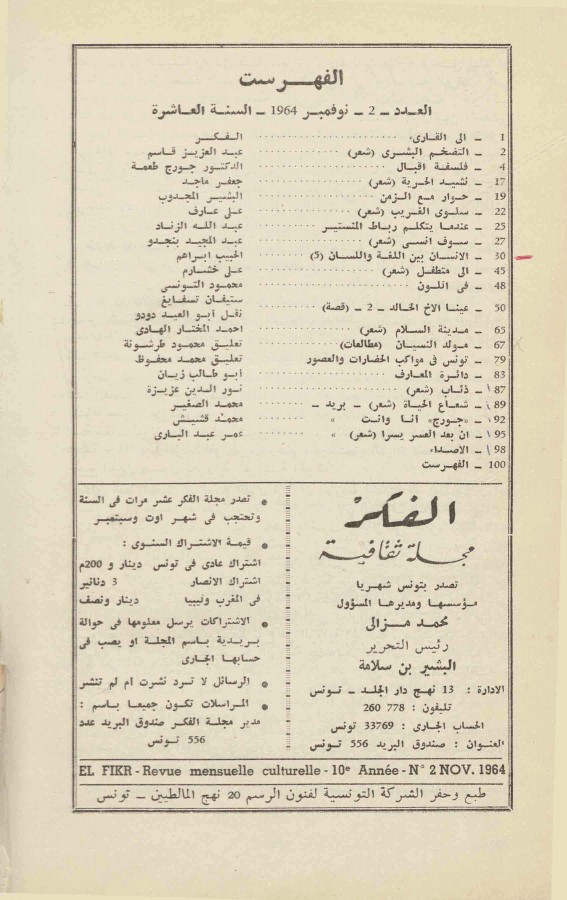 الفهرست
العدد - 2 - نوفمبر 1964 - السنة العاشرة
1 - الى القارىء ........ الفكر
2 - التضخم البشرى (شعر) ........ عبد العزيز قاسم
4 - فلسفة اقبال ........ الدكتور جورج طعمة
17 - نشيد الحرية (شعر) ........ جعفر ماجد
19 - حوار مع الزمن ........ البشير المجدوب
22 - سلوى الغريب (شعر) ........ على عارف
25 - عندما يتكلم رباط المنستير ........ عبد الله الزناد
27 - سوف انسى (شعر) ........ عبد المجيد بنجدو
30 - الانسان بين اللغة واللسان (5) ........ الحبيب ابراهم
45 - الى متطفل (شعر) ........ على خشارم
48 - فى اتلون ........ محمود التونسى
ستيفان تسفايغ
50 - عينا الاخ الخالد - 2 - (قصة) ........ نقل أبو العيد دودو
65 - مدينة السلام (شعر) ........ احمد المختار الهادى
67 - مولد النسيان (مطالعات) ........ تعليق محمود طرشونة
79 - تونس فى مواكب الحضارات والعصور ........ تعليق محمد محفوظ
83 - دائرة المعارف ........ أبو طالب زيان
87 - ذئاب (شعر) ........ نور الدين عزيزة
89 - شعاع الحياة (شعر) - بريد - ........ محمد الصغير
92 - «جورج» انا وانت » ........ محمد قشيش
95 - ان بعد العسر يسرا (شعر) » ........ عمر عبد البارى
98 - الاصداء
100 - الفهرست
الفكر
مجلة ثقافية
تصدر بتونس شهريا
مؤسسها ومديرها المسؤول
محمد مزالى
رئيس التحرير
البشير بن سلامة
الادارة : 13 نهج دار الجلد - تونس
تليفون : 778 260
الحساب الجارى : 33769 تونس
العنوان : صندوق البريد 556 تونس
• تصدر مجلة الفكر عشر مرات فى السنة
وتحتجب فى شهر اوت وسبتمبر
• قيمة الاشتراك السنوى :
اشتراك عادى فى تونس دينار و 200م
اشتراك الانصار 3 دنانير
فى المغرب وليبيا دينار ونصف
• الاشتراكات يرسل معلومها فى حوالة
بريدية باسم المجلة او يصب فى
حسابها الجارى
• الرسائل لا ترد نشرت ام لم تنشر
• المراسلات تكون جميعا باسم :
مدير مجلة الفكر صندوق البريد عدد
556 تونس
EL FIKR - Revue mensuelle culturelle - 10e Année - N° 2 NOV. 1964
طبع وحفر الشركة التونسية لفنون الرسم 20 نهج المالطيين - تونس